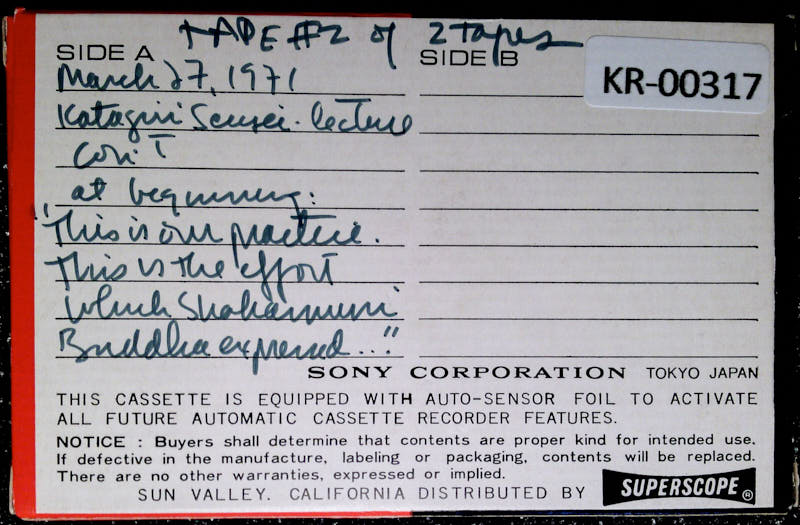 TAPE #2 of 2 tapes
SIDE A
SIDE B
KR-00317
March 27, 1971
Katagiri Sensei lecture
con't
at beginning:
"This is our practice.
This is the effort
which Shakamuni
Buddha expressed..."
SONY CORPORATION TOKYO JAPAN
THIS CASSETTE IS EQUIPPED WITH AUTO-SENSOR FOIL TO ACTIVATE
ALL FUTURE AUTOMATIC CASSETTE RECORDER FEATURES.
NOTICE : Buyers shall determine that contents are proper kind for intended use.
If defective in the manufacture, labeling or packaging, contents will be replaced.
There are no other warranties, expressed or implied.
SUN VALLEY. CALIFORNIA DISTRIBUTED BY SUPERSCOPE®